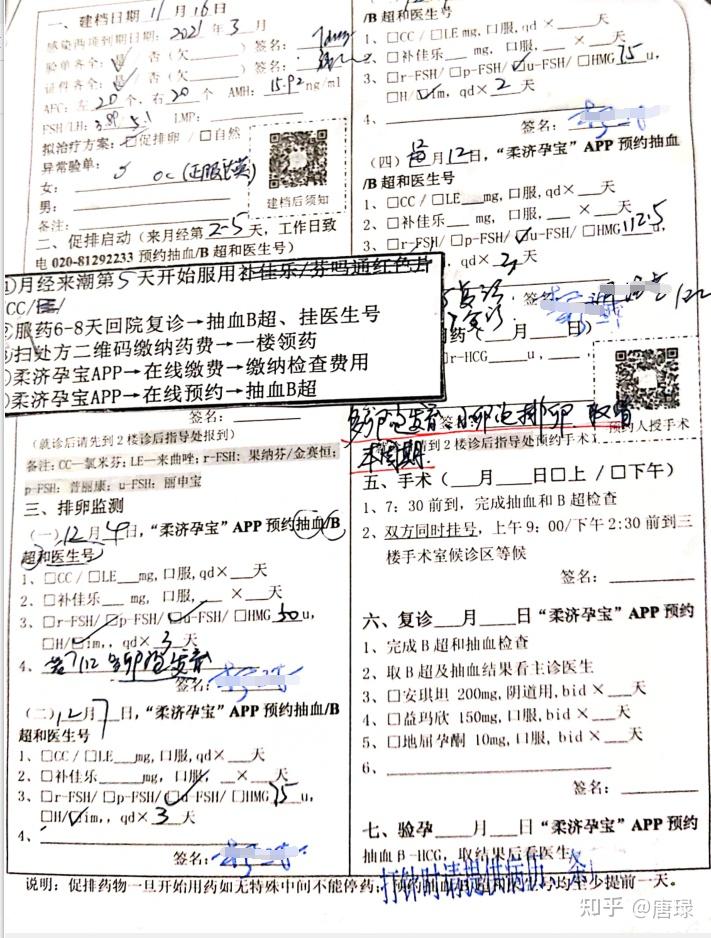 一、建档日期 11月16日
感染两项到期日期：2021年3月
验单齐全：是 否（欠____）签名：
证件齐全：是 否（欠____）签名：
AFC：左 20 个，右 20 个 AMH：15.92 ng/ml
FSH/LH：3.89 5.1 LMP：
拟治疗方案：□促排卵 / □自然
异常验单：
女：
男：
备注：
建档后须知
二、促排启动（来月经第2-5天，工作日致
电 020-81292233 预约抽血/B超和医生号）
①月经来潮第5天开始服用补佳乐/芬吗通红色片
CC/
②服药6-8天回院复诊→抽血B超、挂医生号
③扫处方二维码缴纳药费→一楼领药
④柔济孕宝APP→在线缴费→缴纳检查费用
⑤柔济孕宝APP→在线预约→抽血B超
签名：
（就诊后请先到2楼诊后指导处报到）
备注：CC—氯米芬；LE—来曲唑；r-FSH：果纳芬/金赛恒；
p-FSH：普丽康；u-FSH：丽申宝
三、排卵监测
（一）12月4日，“柔济孕宝”APP预约抽血/B
超和医生号
1、□CC / □LE___mg，口服，qd×___天
2、□补佳乐___mg，口服，___×___天
3、□r-FSH/ □p-FSH/ □u-FSH/ □HMG 50 u，
□H/ □im，，qd× 3 天
4、
签名：
（二）12月7日，“柔济孕宝”APP预约抽血/B
超和医生号
1、□CC / □LE___mg，口服，qd×___天
2、□补佳乐____mg，口服，__×___天
3、□r-FSH/ □p-FSH/ □u-FSH/ □HMG 75 u，
□H/ □im，，qd× 3 天
4、
签名：
/B超和医生号
1、□CC / □LE mg，口服，qd×___天
2、□补佳乐___mg，口服，___×___天
3、□r-FSH/ □p-FSH/ □u-FSH/ □HMG 75 u，
□H/ □im，qd× 2 天
4、
签名：
（四）月12日，“柔济孕宝”APP预约抽血
/B超和医生号
1、□CC / □LE___mg，口服，qd×___天
2、□补佳乐___mg，口服，___×___天
3、□r-FSH/ □p-FSH/ □u-FSH/ □HMG 112.5
qd× 天
复诊
签名：
药（__月__日）
r-HCG____u，
多卵泡发育 小卵泡排卵 取消
本周期
到2楼诊后指导处预约手术）
人授手术
五、手术（___月___日□上 / □下午）
1、7：30前到，完成抽血和B超检查
2、双方同时挂号，上午9：00/下午2:30前到三
楼手术室候诊区等候
签名：
六、复诊___月___日“柔济孕宝”APP预约
1、完成B超和抽血检查
2、取B超及抽血结果看主诊医生
3、□安琪坦 200mg，阴道用，bid ×___天
4、□益玛欣 150mg，口服，bid ×___天
5、□地屈孕酮 10mg，口服，bid ×___天
6、
签名：
七、验孕___月___日“柔济孕宝”APP预约
抽血B-HCG，取结果后看医生
打针时请提供病历、条
说明：促排药物一旦开始用药如无特殊中间不能停药；预约抽血B超和医生号均至少提前一天。
知乎 @唐琭